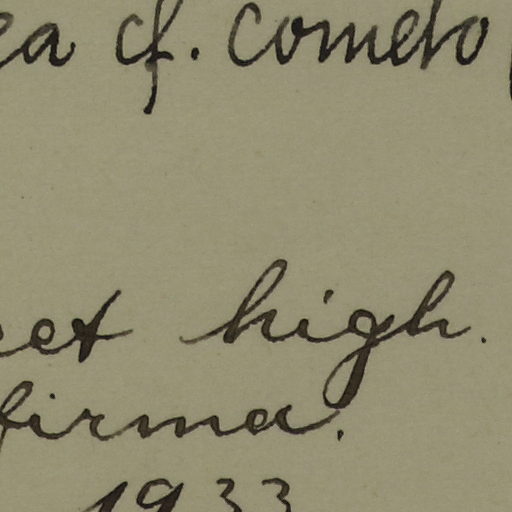 ea cf. cometo
eet high.
firma.
1933